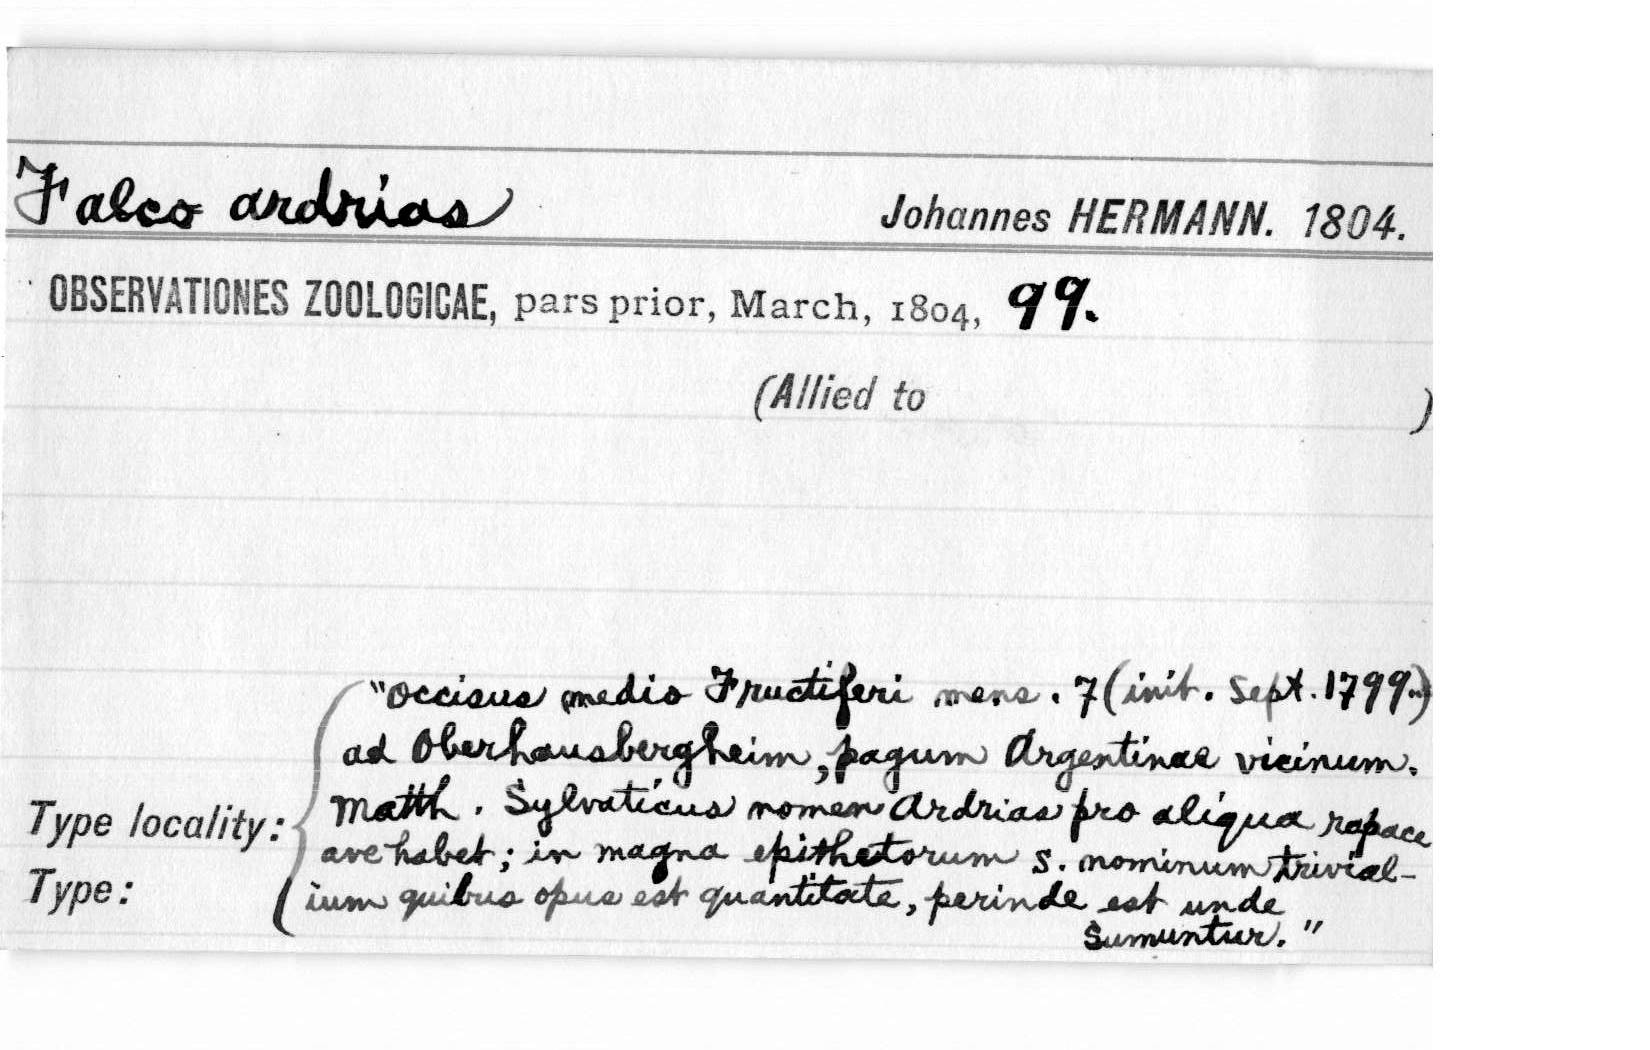 Falco ardrias Johannes HERMANN. 1804.
OBSERVATIONES ZOOLOGICAE, pars prior, March, 1804, 99.
(Allied to )
"Occisus medio Fructiferi mens. 7 (init. Sept. 1799.)
ad Oberhausbergheim, pagum Argentinae vicinum.
Type locality: Matth. Sylvaticus nomen Ardrias pro aliqua rapace
ave habet; in magna epithetorum s. nominum trivial-
Type: ium quibus opus est quantitate, perinde est unde
sumuntur."